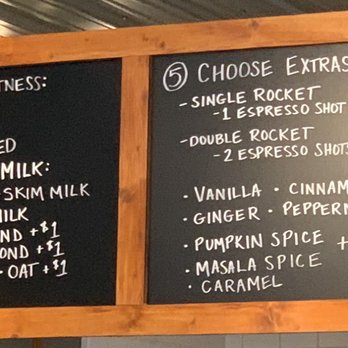 TNESS:
ED
MILK:
SKIM MILK
MILK
ND +$1
OND +$1
· OAT +$1
⑤ CHOOSE EXTRAS
- SINGLE ROCKET
- 1 ESPRESSO SHOT
- DOUBLE ROCKET
- 2 ESPRESSO SHOTS
· VANILLA · CINNAM
· GINGER · PEPPERM
· PUMPKIN SPICE +
· MASALA SPICE
· CARAMEL